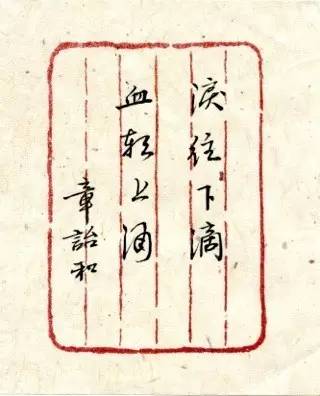 淚往下滴
血朝上涌
章詒和